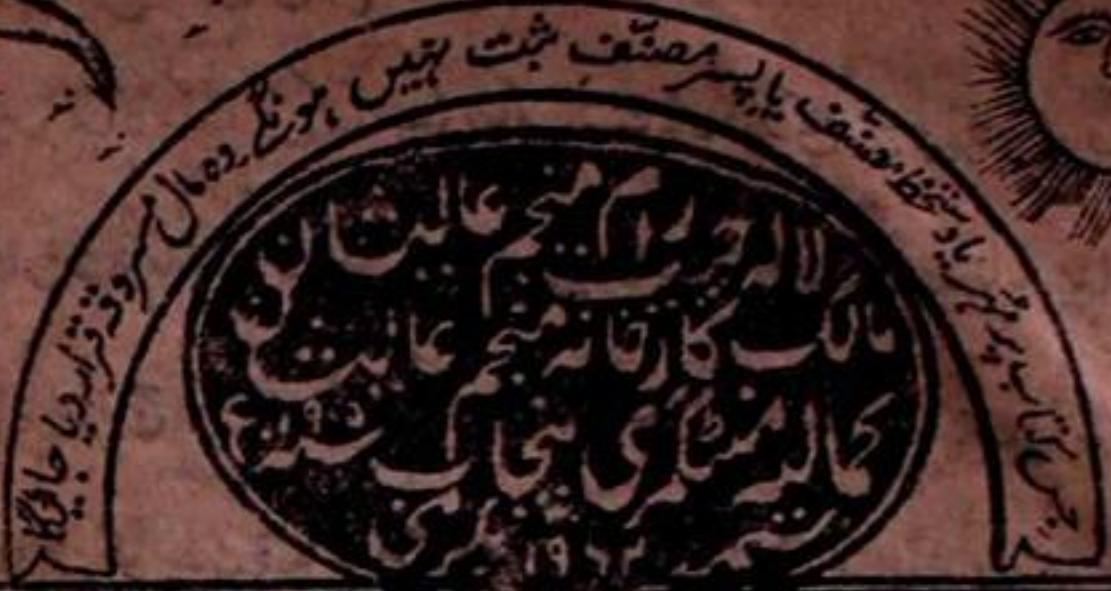 جس کتاب پر مہر یا دستخط مصنف یا پسر مصنف ثبت نہیں ہونگے وہ مال مسروقہ قرار دیا جائیگا
لالہ جیب رام منجم عالیشان
مالک کارخانہ منجم عالیشان
کمالیہ منٹگمری پنجاب سنہ ۱۹۰۵ء
سمت ۱۹۶۲ بکرمی